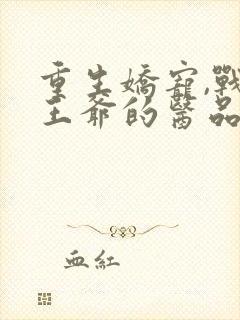 重生嬌寵,戰
王爺的醫品
血紅